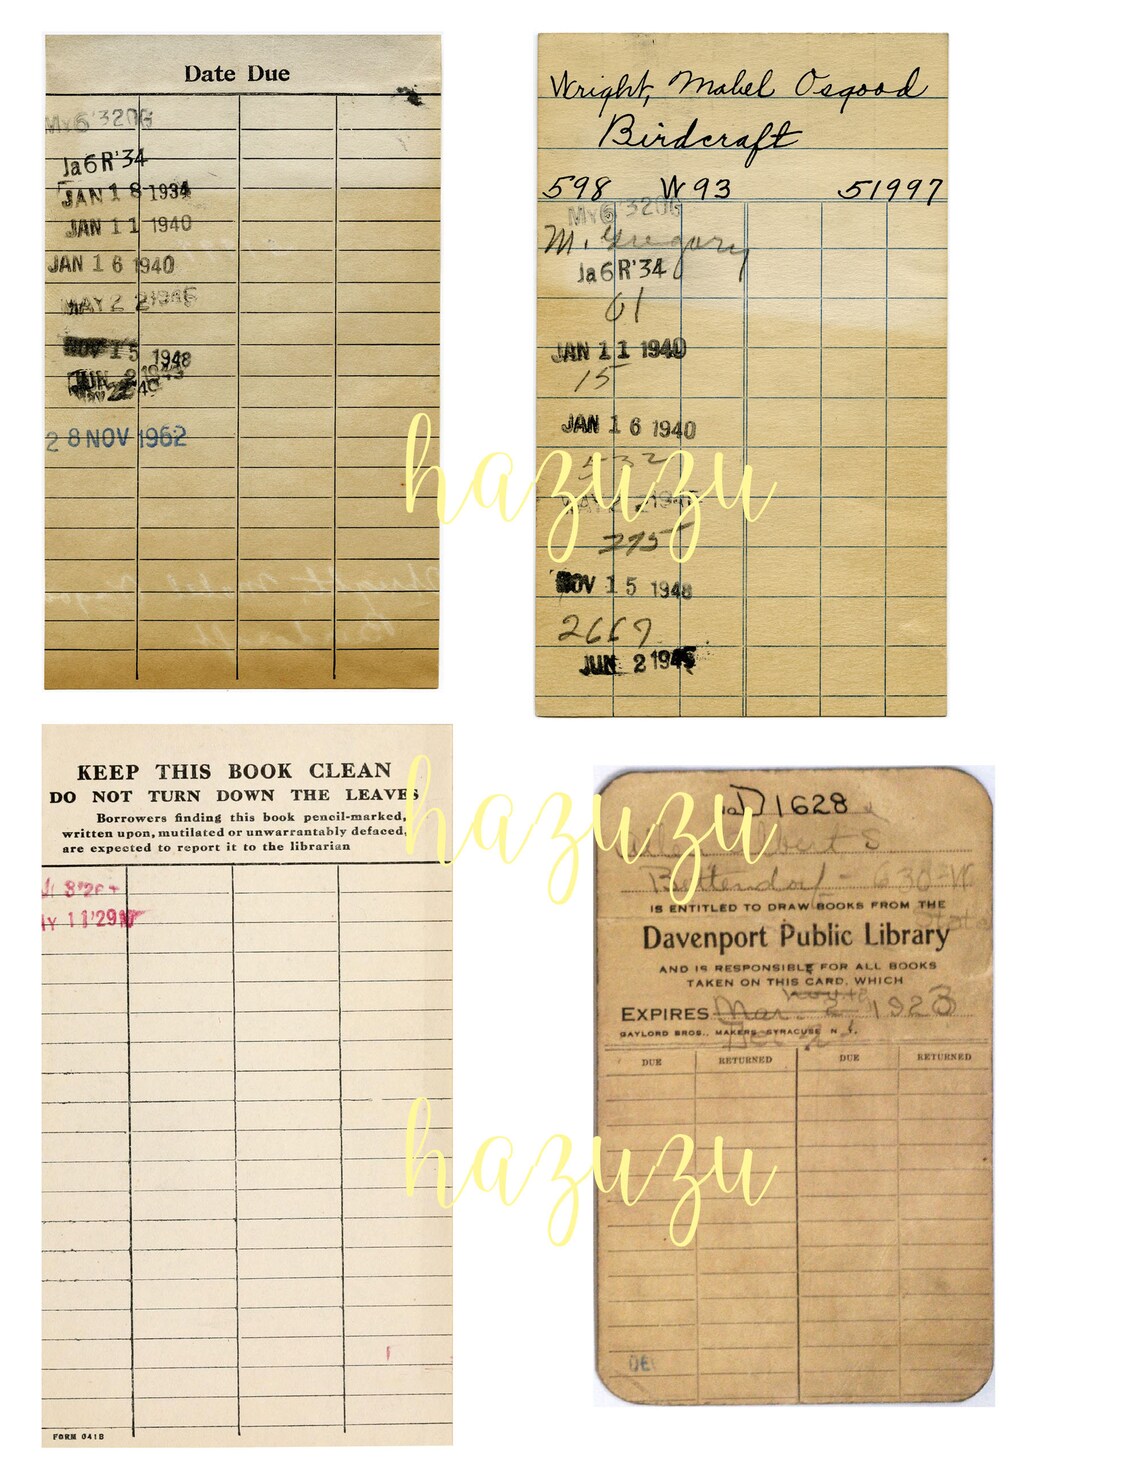 Date Due
My6'32OG
Ja6R'34
JAN 18 1934
JAN 11 1940
JAN 16 1940
MAY 22
NOV 15 1948
JUN 2
28 NOV 1962
Wright, Mabel Osgood
Birdcraft
598 W93 51997
My6'32OG
M. Gregory
Ja6R'34
61
JAN 11 1940
15
JAN 16 1940
532
MAY 22
275
NOV 15 1948
2667
JUN 2 1945
hazuzu
KEEP THIS BOOK CLEAN
DO NOT TURN DOWN THE LEAVES
Borrowers finding this book pencil-marked,
written upon, mutilated or unwarrantably defaced,
are expected to report it to the librarian
8'26
11'29
FORM 041B
hazuzu
D1628
Albert S.
Bettendorf - 630-W
State
IS ENTITLED TO DRAW BOOKS FROM THE
Davenport Public Library
AND IS RESPONSIBLE FOR ALL BOOKS
TAKEN ON THIS CARD, WHICH
EXPIRES Mar. 2 1923
GAYLORD BROS., MAKERS, SYRACUSE N. Y.
DUE RETURNED DUE RETURNED
hazuzu